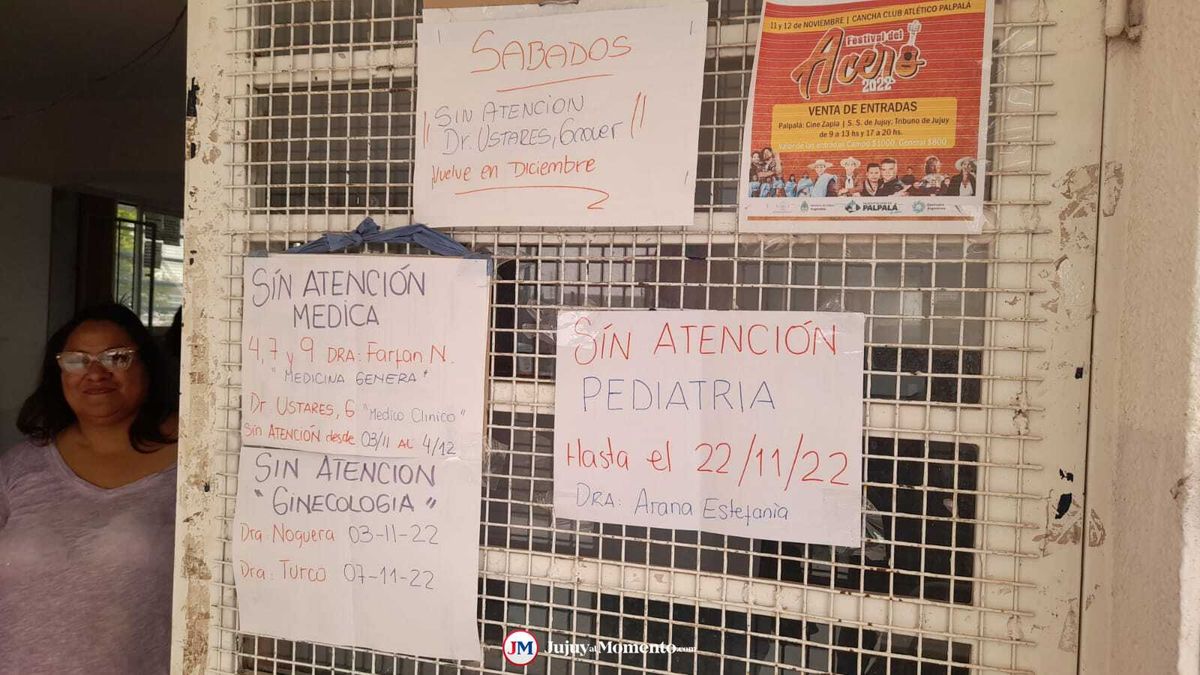 SABADOS
SIN ATENCION
Dr. USTARES, Grover
Vuelve en Diciembre
11 y 12 de NOVIEMBRE | CANCHA CLUB ATLÉTICO PALPALÁ
Festival del
Acero
2022
VENTA DE ENTRADAS
Palpalá: Cine Zapla | S. S. de Jujuy: Tribuno de Jujuy
de 9 a 13 hs y 17 a 20 hs.
Valor de las entradas Campo $1000, General $800
PALPALÁ
SÍN ATENCIÓN
MEDICA
4, 7 y 9 DRA: Farfan N.
"MEDICINA GENERA"
Dr. USTARES, G "Medico Clinico"
Sin ATENCIÓN desde 03/11 AL 4/12
SIN ATENCION
"GINECOLOGIA"
Dra: Noguera 03-11-22
Dra: Turco 07-11-22
SÍN ATENCIÓN
PEDIATRIA
Hasta el 22/11/22
DRA: Arana Estefania
JM JujuyalMomento.com